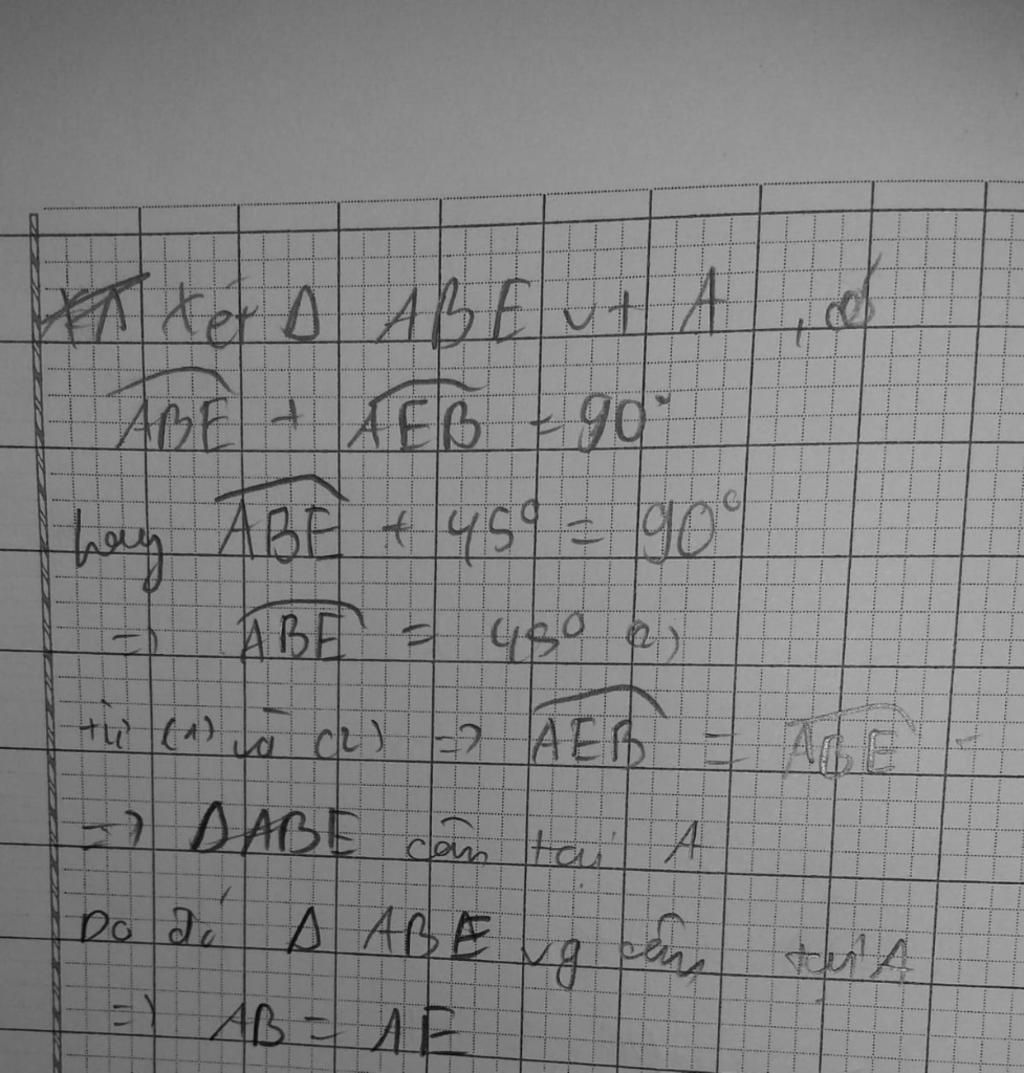 Xét Δ ABE vt A, có
\widehat{ABE} + \widehat{AEB} = 90°
hay \widehat{ABE} + 45° = 90°
=> \widehat{ABE} = 45° (2)
từ (1) và (2) => \widehat{AEB} = \widehat{ABE}
=> ΔABE cân tại A
Do đó Δ ABE vg cân tại A
=> AB = AE